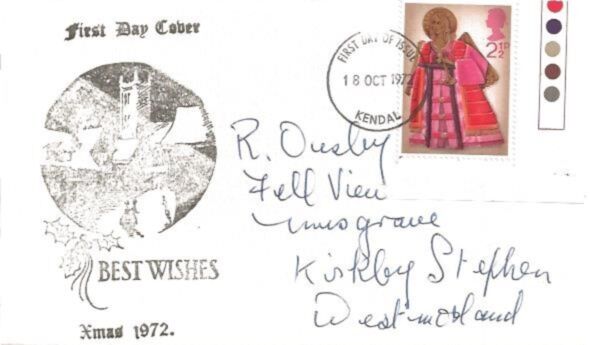 First Day Cover
FIRST DAY OF ISSUE
18 OCT 1972
KENDAL
2½P
R. Ousby
Fell View
Musgrave
Kirkby Stephen
Westmorland
BEST WISHES
Xmas 1972.